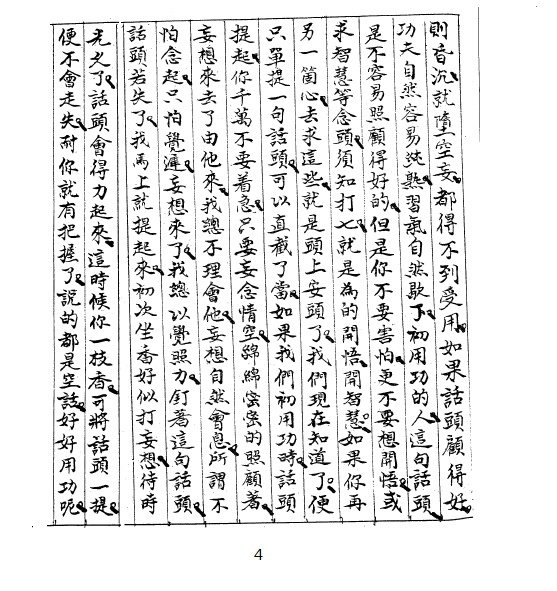 則昏沉、就墮空妄、都得不到受用、如果話頭顧得好、
功夫自然容易純熟、習氣自然歇下、初用功的人、這句話頭、
是不容易照顧得好的、但是你不要害怕、更不要想開悟、或
求智慧等念頭、須知打七、就是為的開悟、開智慧、如果你再
另一箇心、去求這些、就是頭上安頭了、我們現在知道了、便
只單提一句話頭、可以直截了當、如果我們初用功時、話頭
提起、你千萬不要着急、只要妄念情空、綿綿密密的照顧著、
妄想來去了、由他來、我總不理會他、妄想自然會息、所謂不
怕念起、只怕覺遲、妄想來了、我總以覺照力、釘著這句話頭、
話頭若失了、我馬上就提起來、初次坐香好似打妄想、待時
光久了、話頭會得力起來、這時候、你一枝香、可將話頭一提、
便不會走失、耐你就有把握了、說的都是空話、好好用功呢、
4